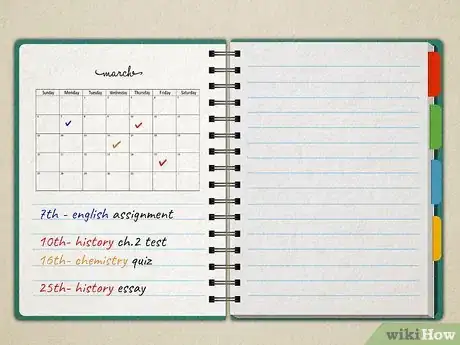 march
Sunday Monday Tuesday Wednesday Thursday Friday Saturday
7th - english assignment
10th- history ch.2 test
16th- chemistry quiz
25th- history essay
wikiHow